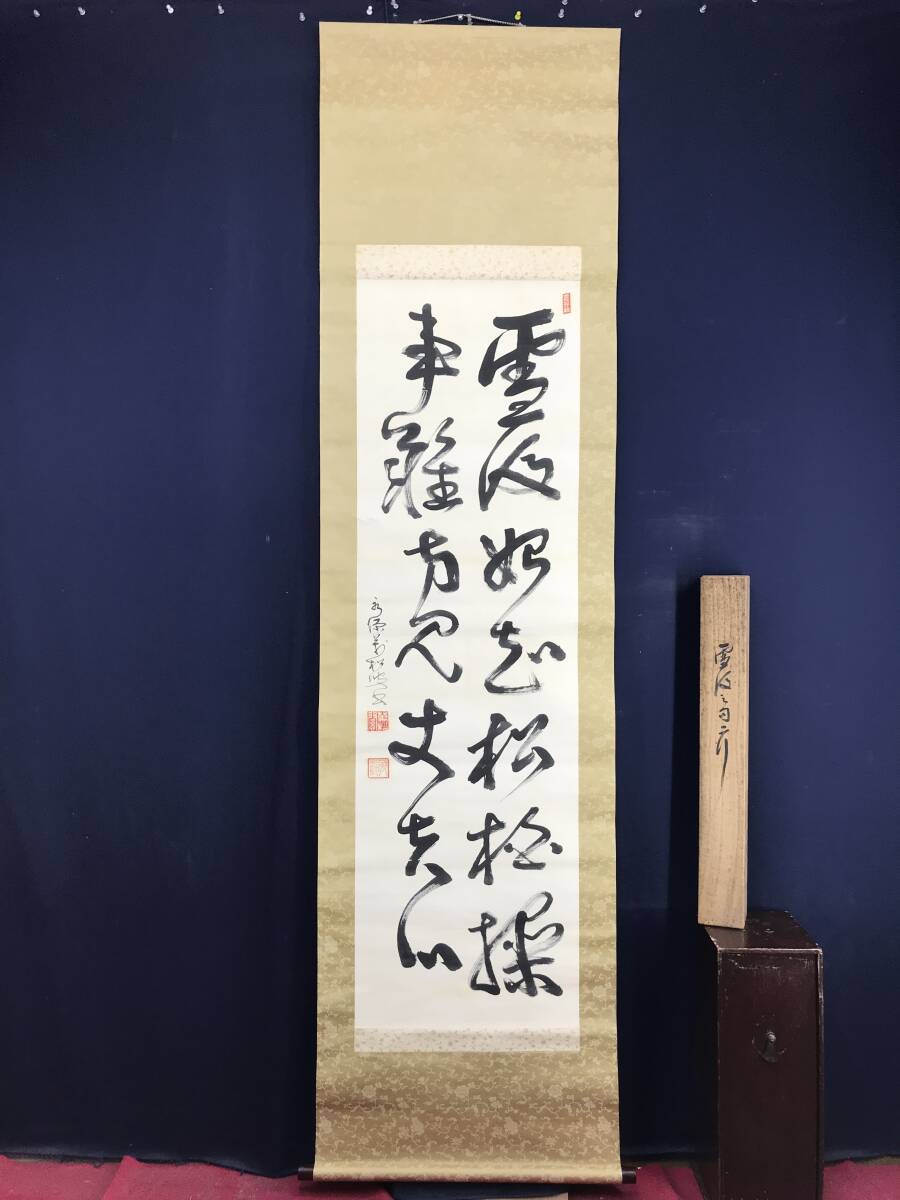 雪後始知松柏操
事難方見丈夫心
雪後之句